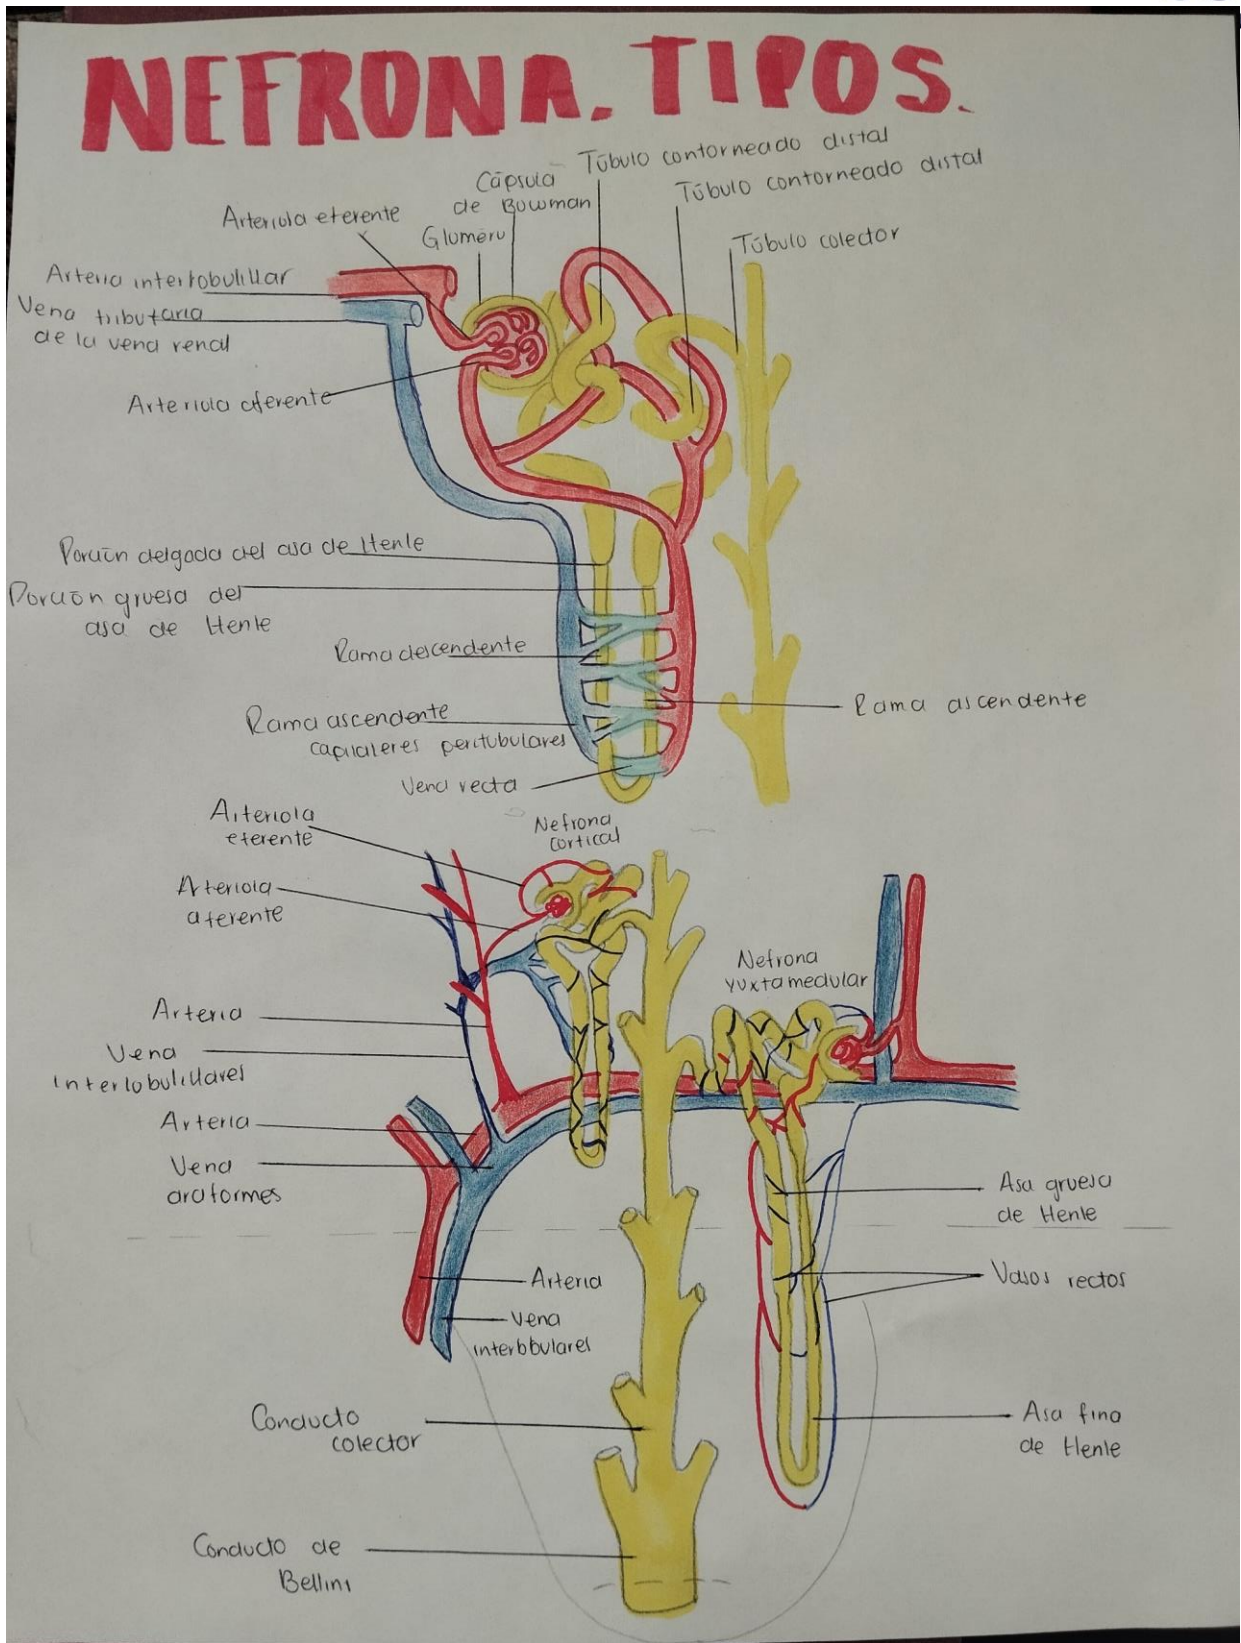 NEFRONA. TIPOS.
Túbulo contorneado distal
Túbulo contorneado distal
Cápsula
de Bowman
Arteriola eferente
Glomeru
Túbulo colector
Arteria interlobulillar
Vena tributaria
de la vena renal
Arteriola aferente
Porción delgada del asa de Henle
Porción gruesa del
asa de Henle
Rama descendente
Rama ascendente
Rama ascendente
capilaleres peritubulares
Vena recta
Arteriola
eferente
Nefrona
cortical
Arteriola
aferente
Nefrona
yuxtamedular
Arteria
Vena
Interlobulillares
Arteria
Vena
arciformes
Asa gruesa
de Henle
Arteria
Vasos rectos
Vena
interlobulares
Conducto
colector
Asa fina
de Henle
Conducto de
Bellini